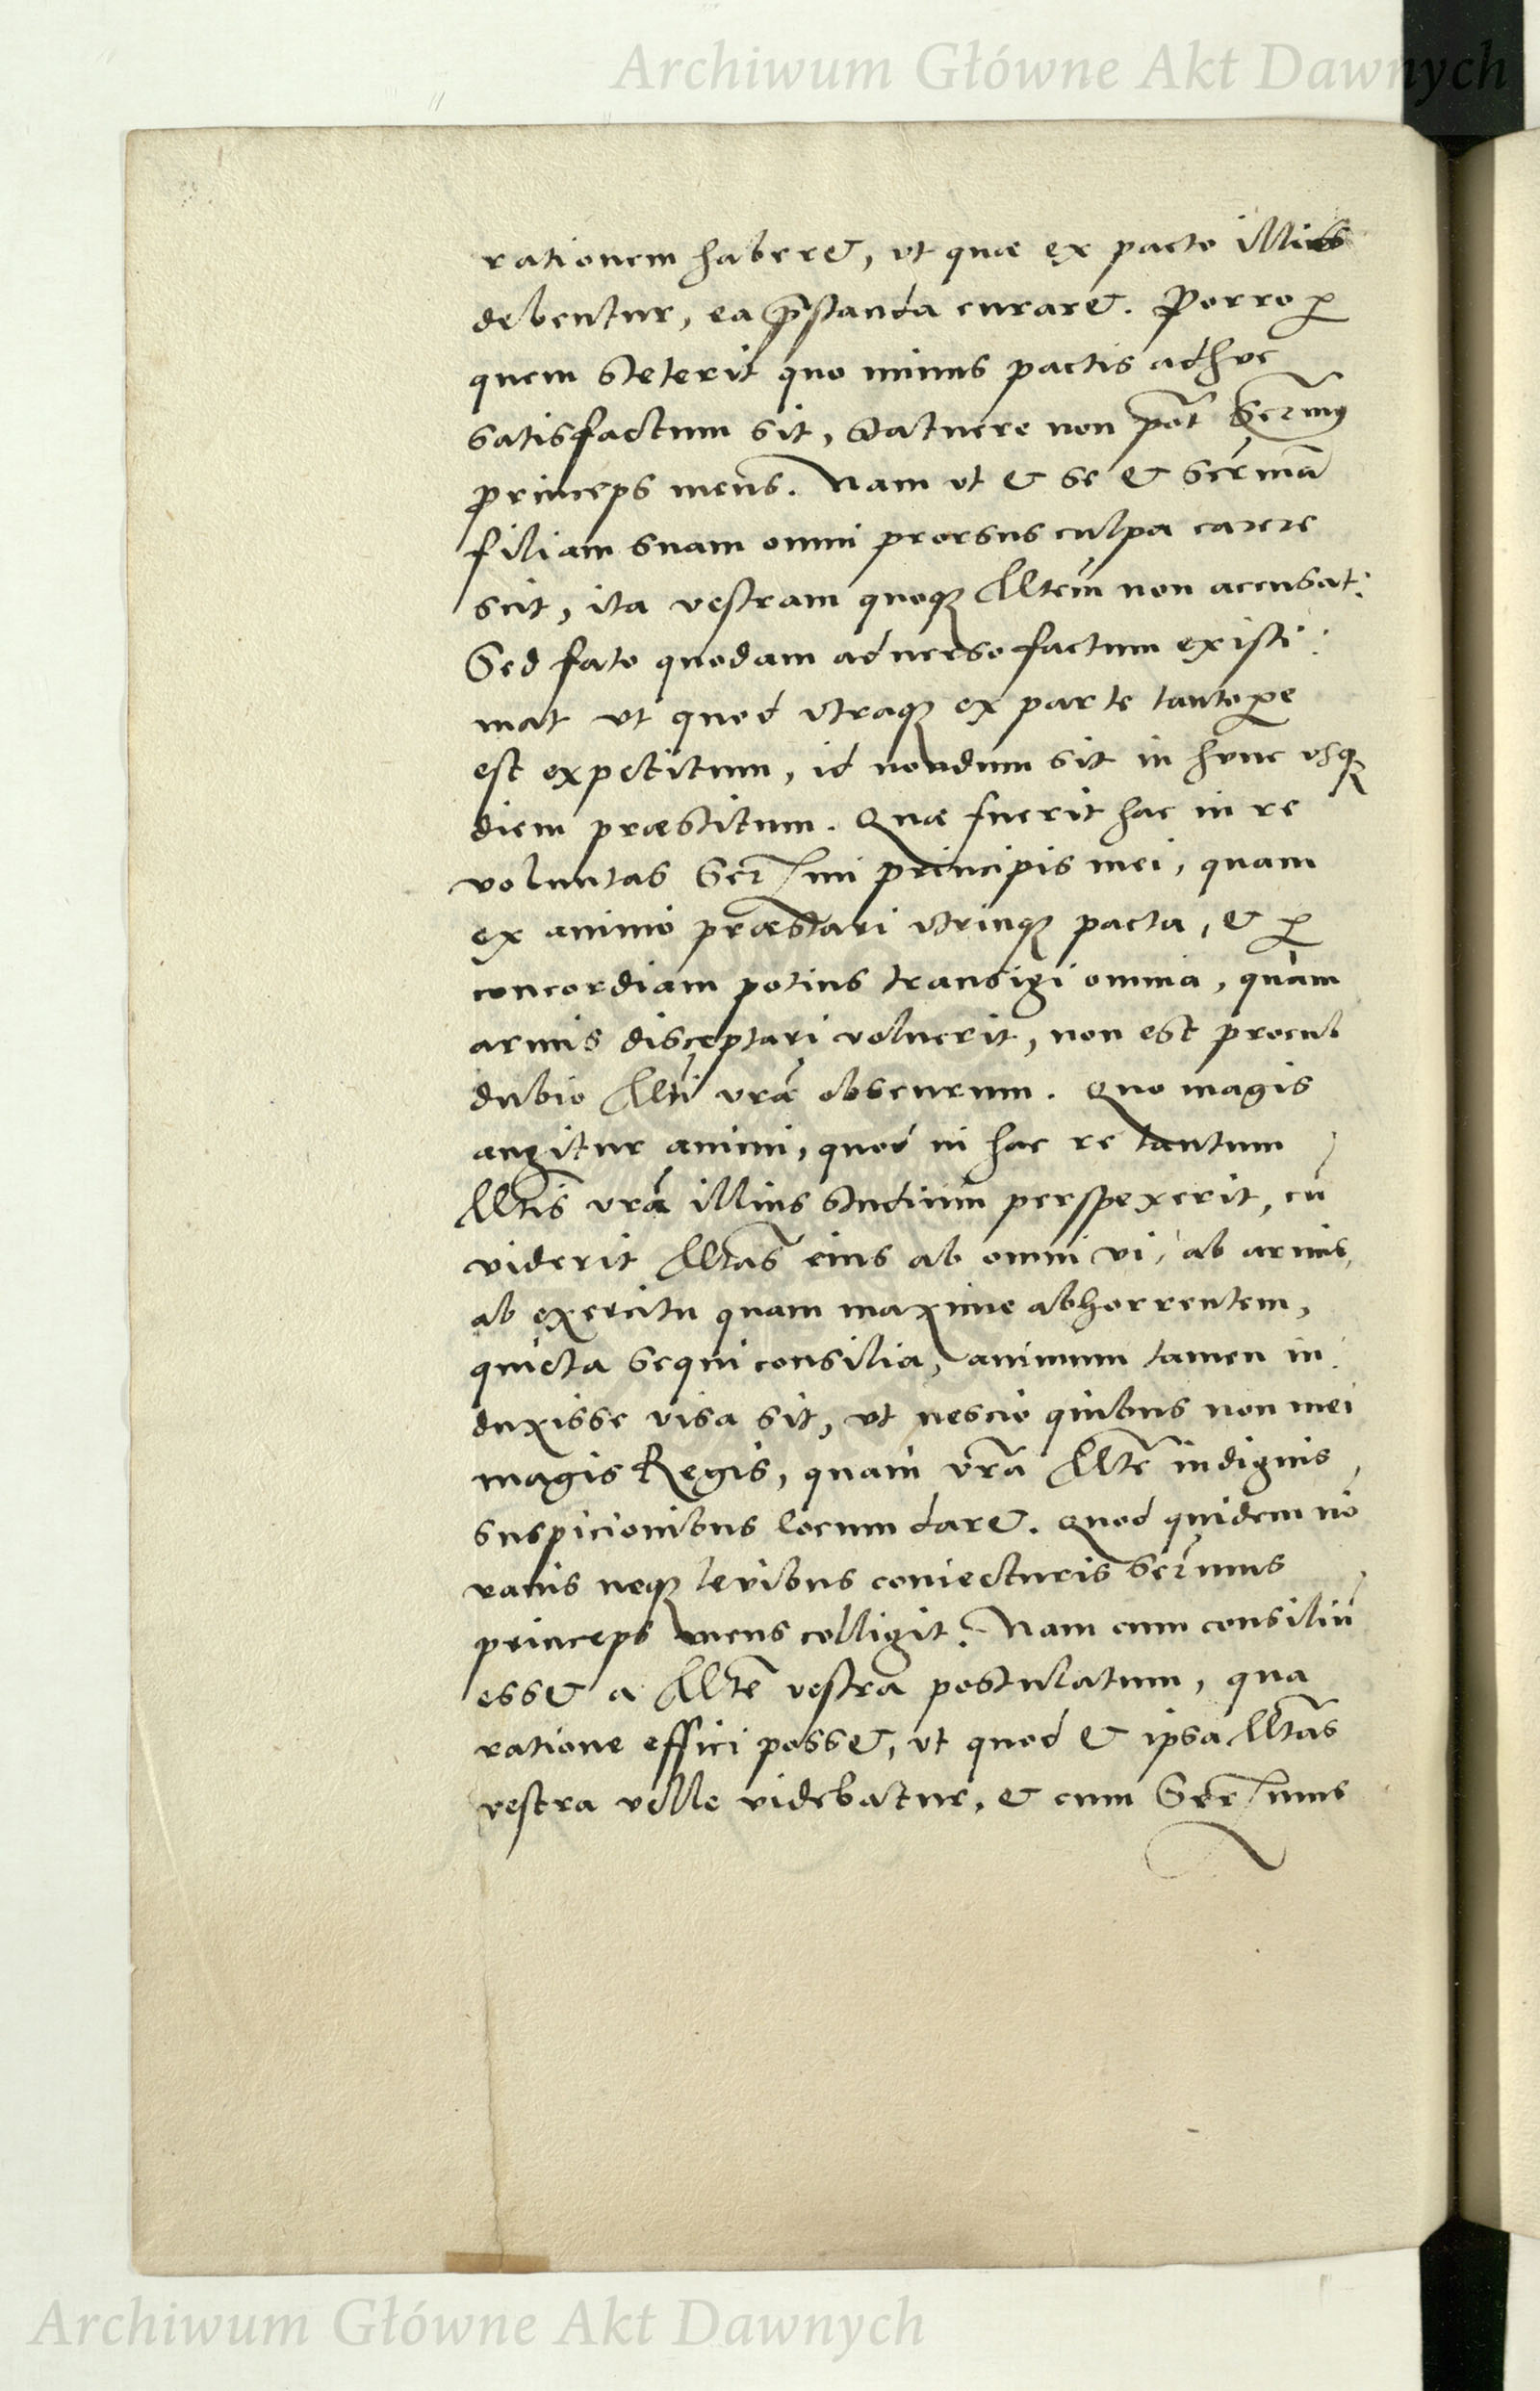 Archiwum Główne Akt Dawnych
rationem haberet, ut quæ ex pacto illius
debentur, ea p̃standa curaret. Porro ꝑ
quem steterit quo minus pactis adhuc
satisfactum sit, statuere non pot̃ Ser̃mꝰ
princeps meus. Nam ut & se & Ser̃mã
filiam suam omni prorsus culpa carere
scit, ita vestram quoqꝫ Cltem̃ non accusat:
Sed fato quodam adverso factum existi:
mat ut quod utraqꝫ ex parte tantoꝑe
est expetitum, id nondum sit in hunc usqꝫ
diem præstitum. Quæ fuerit hac in re
voluntas Ser̃mi principis mei, quam
ex animo præstari utrinqꝫ pacta, & ꝑ
concordiam potius transigi omnia, quàm
armis disceptari voluerit, non est procul
dubio Clti vr̃æ obscurum. Quo magis
angitur animi, quod in hac re tantum
Cltis vr̃a illius studium perspexerit, cũ
viderit Cltas̃ eius ab omni vi, ab armis,
ab exercitu quam maxime abhorrentem,
quieta sequi consilia, animum tamen in
duxisse visa sit, ut nescio quibus non mei
magis Regis, quam vr̃a Clte indignis
suspicionibus locum daret. Quod quidem nõ
vanis neqꝫ levibus coniecturis Ser̃mus
princeps meus colligit. Nam cum consiliũ
esset a Clte vestra postulatum, qua
ratione effici posset, ut quod & ipsa Cltas̃
vestra velle videbatur, & cum Ser̃mus
Archiwum Główne Akt Dawnych